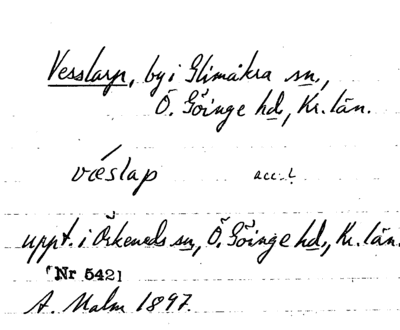 Vesslarp, by i Glimåkra sn,
Ö. Göinge hd, Kr. län.
væ´slap acc. 1
uppt. i Örkeneds sn, Ö. Göinge hd, Kr. län.
Nr 5421
A. Malm 1897.